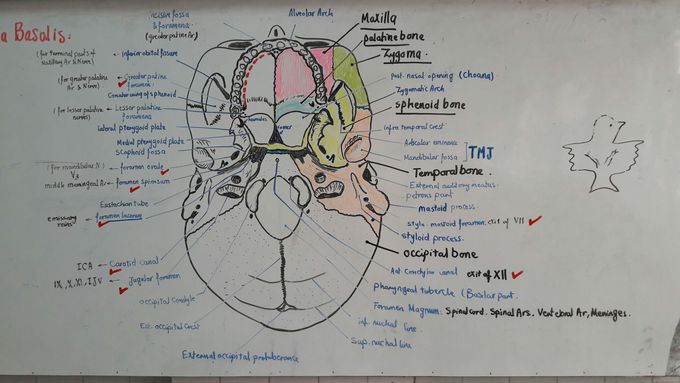 a Basalis:
incisive fossa
& foramena
(greater palatine Ar)
Alveolar Arch
Maxilla
palatine bone
Zygoma.
(for terminal parts of
Maxillary Ar & Nerve)
inferior orbital fissure
(for greater palatine
Ar & Nerve)
Greater palatine
foramen
of sphenoid
(for lesser palatine
nerves)
Lesser palatine
foramena
Lateral pterygoid plate
Medial pterygoid plate
Scaphoid fossa
(for mandibular N.)
V3
foramen ovale
middle meningeal Ar
foramen spinosum
Eustachian tube
emissary
veins
foramen lacerum
ICA
Carotid canal
IX, X, XI, IJV
Jugular foramen
occipital Condyle
Ext. occipital Crest
External occipital protuberance
hamulus
vomer
Post. nasal opening (Choana)
Zygomatic Arch
sphenoid bone
infra temporal crest
Articular eminence
Mandibular fossa
TMJ
Temporal bone.
External auditory meatus
petrous part
mastoid process
stylo mastoid foramen: exit of VII
styloid process.
occipital bone
Ant. Condylar canal exit of XII
Pharyngeal tubercle (Basilar part.
Foramen Magnum: Spinal cord, Spinal Ars, Vertebral Ar, Meninges.
inf. nuchal line
Sup. nuchal line